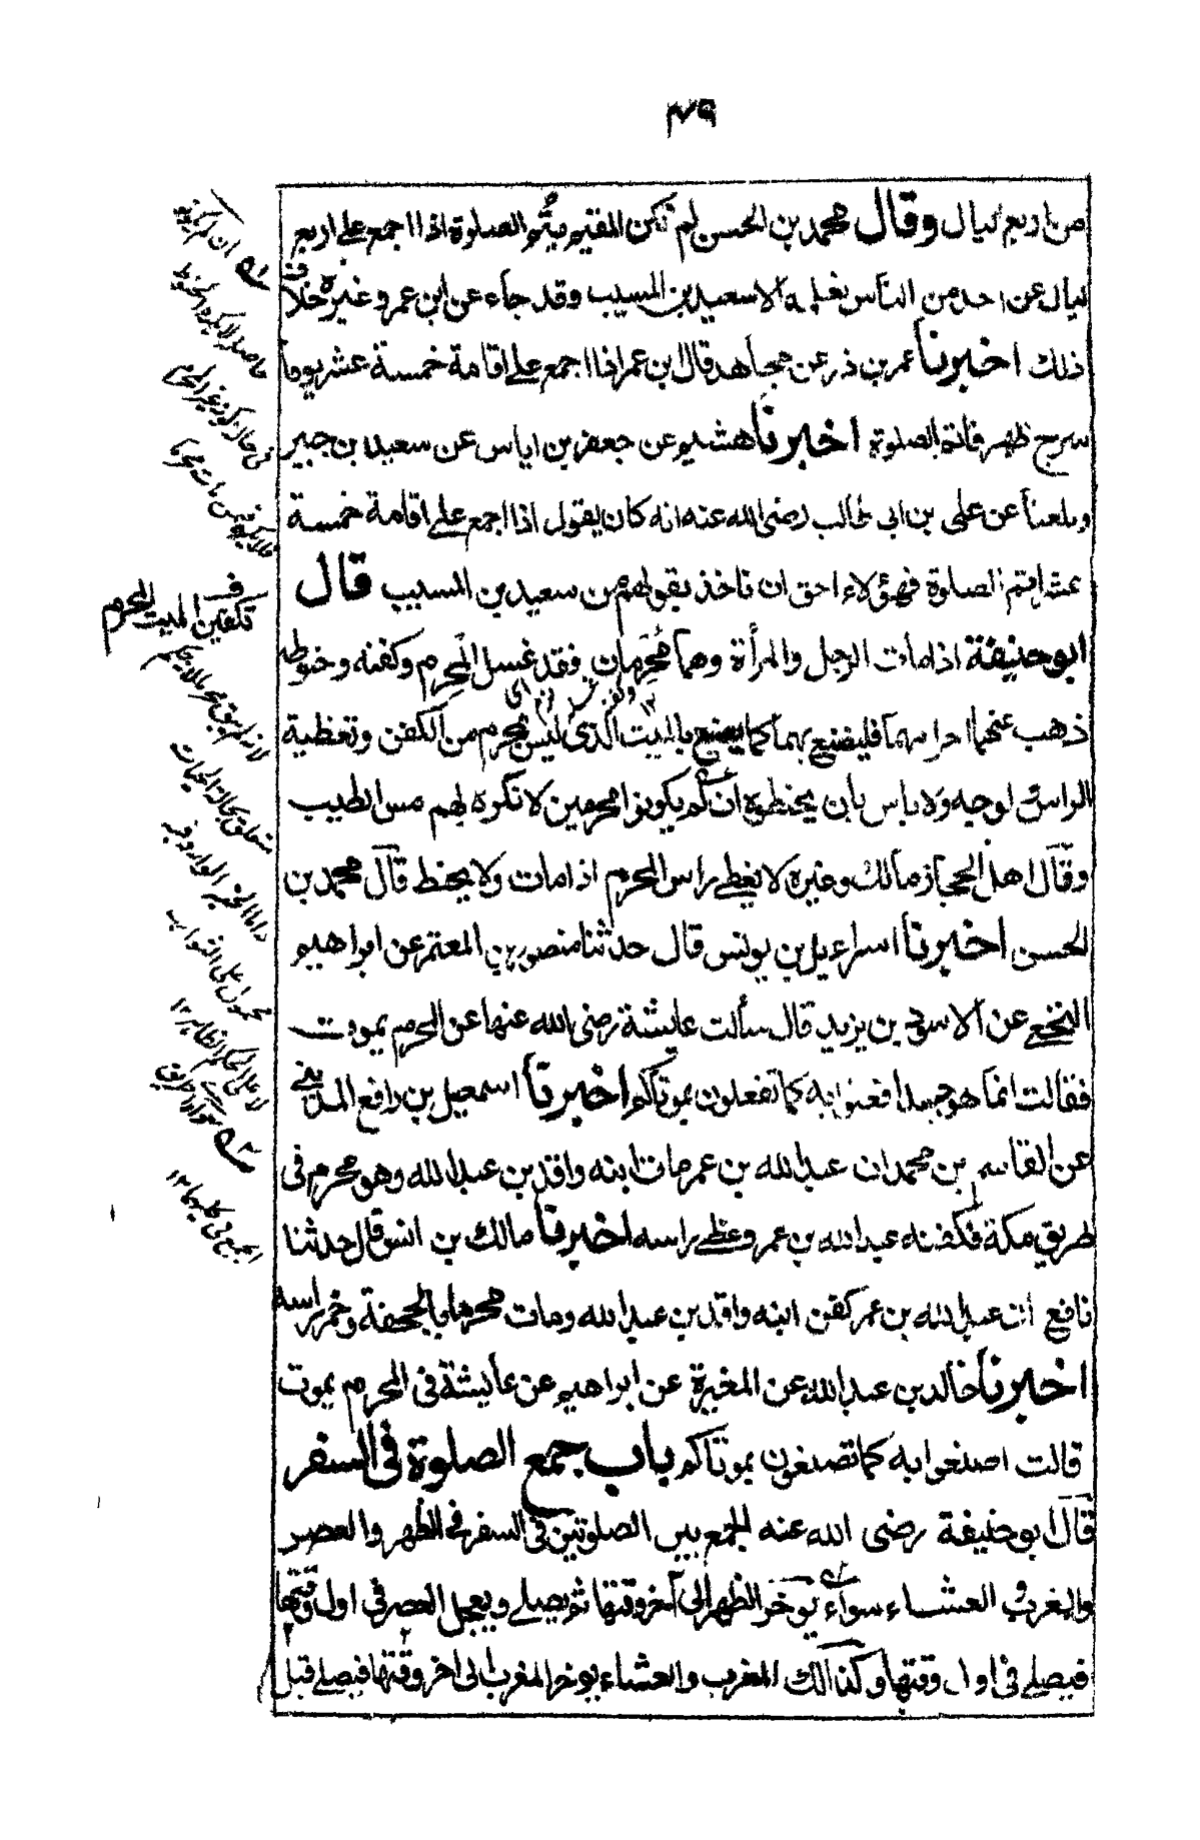 ٤٩
من اربع ليال وقال محمد بن الحسن لم نكن المقيم يتم الصلوة اذا اجمع على اربع
ليال عن احد من الناس نعلمه الا سعيد بن المسيب وقد جاء عن ابن عمر وغيره خلاف
ذلك اخبرنا عمر بن ذر عن مجاهد قال ابن عمر اذا اجمع على اقامة خمسة عشر يوما
سرح ظهره فاتم الصلوة اخبرنا هشيم عن جعفر بن اياس عن سعيد بن جبير
وبلغنا عن على بن ابى طالب رضى الله عنه انه كان يقول اذا اجمع على اقامة خمسة
عشر اتم الصلوة فهؤلاء احق ان ناخذ بقولهم من سعيد بن المسيب قال
ابو حنيفة اذا مات الرجل والمرأة وهما محرمان فقد غسل المحرم وكفنه وحنوطه
ذهب عنهما احرامهما فليصنع بهما كما يصنع بالميت الذى ليس بمحرم من الكفن وتغطية
الراس والوجه ولا باس بان يحنطوه ان لم يكونوا محرمين لا نكره لهم مس الطيب
وقال اهل الحجاز مالك وغيره لا يغطى راس المحرم اذا مات ولا يحنط قال محمد بن
الحسن اخبرنا اسراءيل بن يونس قال حدثنا منصور بن المعتمر عن ابراهيم
النخعى عن الاسود بن يزيد قال سألت عايشة رضى الله عنها عن المحرم يموت
فقالت انما هو جسد اصنعوا به كما تفعلون بموتاكم اخبرنا اسمعيل بن رافع المدينى
عن القاسم بن محمد ان عبد الله بن عمر مات ابنه واقد بن عبد الله وهو محرم فى
طريق مكة فكفنه عبد الله بن عمر وغطى راسه اخبرنا مالك بن انس قال حدثنا
نافع ان عبد الله بن عمر كفن ابنه واقد بن عبد الله ومات محرما بالجحفة وخمر راسه
اخبرنا خالد بن عبد الله عن المغيرة عن ابراهيم عن عايشة فى المحرم يموت
قالت اصنعوا به كما تصنعون بموتاكم باب جمع الصلوة فى السفر
قال ابو حنيفة رضى الله عنه الجمع بين الصلوتين فى السفر فى الظهر والعصر
والمغرب والعشاء سواء يوخر الظهر الى آخر وقتها ثم يصلى ويعجل العصر فى اول وقتها
فيصلى فى اول وقتها وكذلك المغرب والعشاء يوخر المغرب الى اخر وقتها فيصلى قبل
ف
تكفين الميت المحرم